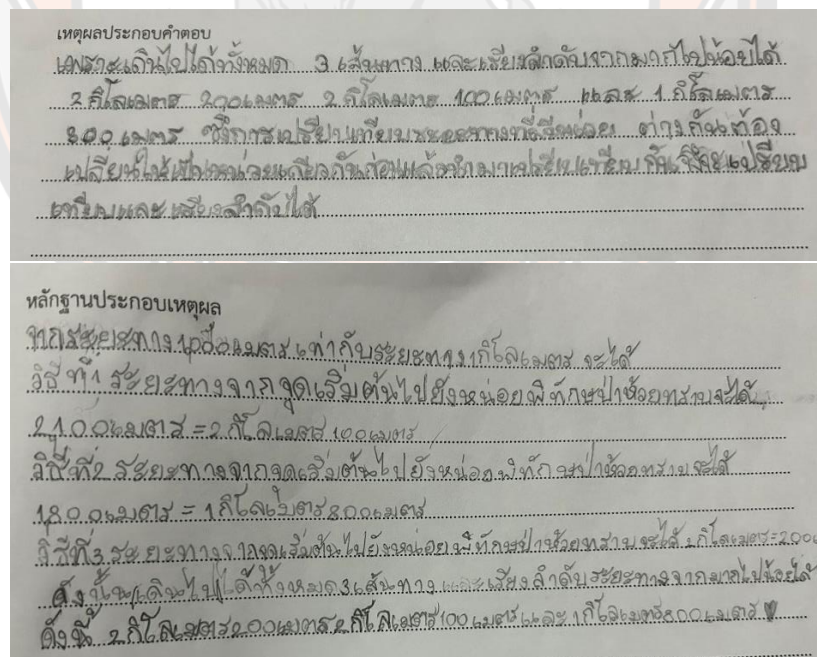 เหตุผลประกอบคำตอบ
เพราะเดินไปได้ทั้งหมด 3 เส้นทาง และเรียงลำดับจากมากไปน้อยได้
2 กิโลเมตร 200 เมตร 2 กิโลเมตร 100 เมตร และ 1 กิโลเมตร
800 เมตร ซึ่งการเปรียบเทียบระยะทางที่มีหน่วย ต่างกันต้อง
เปลี่ยนให้เป็นหน่วยเดียวกันก่อนแล้วนำมาเปรียบเทียบ กันจึงจะเปรียบ
เทียบและเรียงลำดับได้
หลักฐานประกอบเหตุผล
จากระยะทาง 1,000 เมตร เท่ากับระยะทาง 1 กิโลเมตร จะได้
วิธีที่1 ระยะทางจากจุดเริ่มต้นไปยังหน่อยพิทักษป่าห้วยทรายจะได้
2,100 เมตร = 2 กิโลเมตร 100 เมตร
วิธีที่2 ระยะทางจากจุดเริ่มต้นไปยังหน่อยพิทักษป่าห้วยทราย จะได้
1,800 เมตร = 1 กิโลเมตร 800 เมตร
วิธีที่3 ระยะทางจากจุดเริ่มต้นไปยังหน่อยพิทักษป่าห้วยทราย จะได้ 2 กิโลเมตร = 200
ดังนั้น เดินไปได้ทั้งหมด 3 เส้นทาง และเรียงลำดับระยะทางจากมากไปน้อยได้
ดังนี้ 2 กิโลเมตร 200 เมตร 2 กิโลเมตร 100 เมตร และ 1 กิโลเมตร 800 เมตร